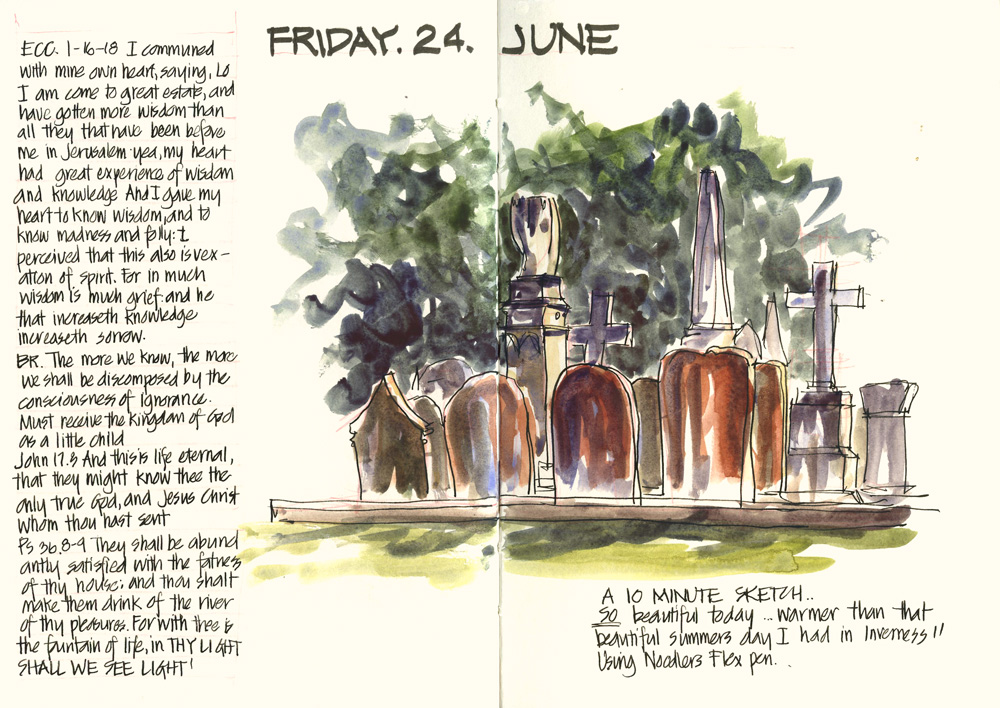 FRIDAY. 24. JUNE
ECC. 1-16-18 I communed
with mine own heart, saying, Lo
I am come to great estate, and
have gotten more wisdom than
all they that have been before
me in Jerusalem: yea, my heart
had great experience of wisdom
and knowledge And I gave my
heart to know wisdom, and to
know madness and folly: I
perceived that this also is vex-
ation of spirit. For in much
wisdom is much grief: and he
that increaseth knowledge
increaseth sorrow.
BR. The more we know, the more
we shall be discomposed by the
consciousness of ignorance.
Must receive the kingdom of God
as a little child
John 17.3 And this is life eternal,
that they might know thee the
only true God, and Jesus Christ
whom thou hast sent
Ps 36.8-9 They shall be abund
antly satisfied with the fatness
of thy house; and thou shalt
make them drink of the river
of thy pleasures. For with thee is
the fountain of life, in THY LIGHT
SHALL WE SEE LIGHT!
A 10 MINUTE SKETCH..
SO beautiful today ... warmer than that
beautiful summers day I had in Inverness!!
Using Noodlers Flex pen...